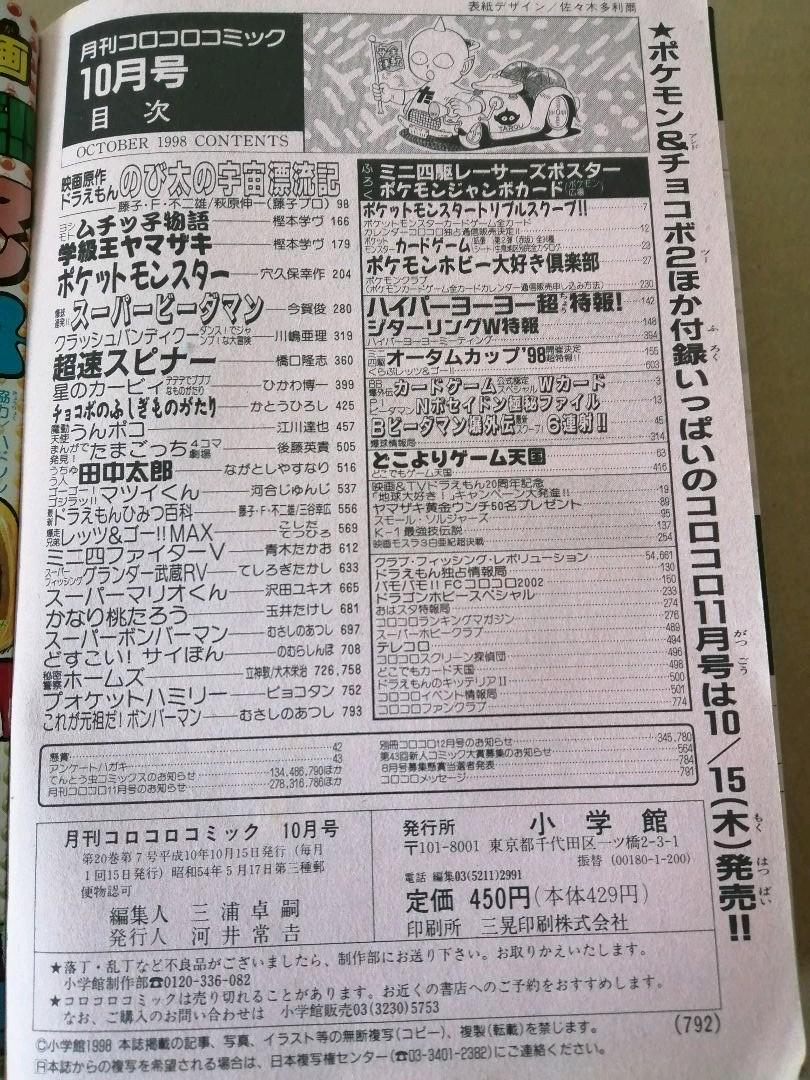 表紙デザイン／佐々木多利爾
月刊コロコロコミック
10月号
目次
OCTOBER 1998 CONTENTS
安全運転
た
TAROU
★ポケモン&チョコボ2ほか付録いっぱいのコロコロ11月号は10/15(木)発売!!
映画原作
ドラえもん のび太の宇宙漂流記
藤子・F・不二雄/萩原伸一(藤子プロ) 98
ヨシモト ムチッ子物語 樫本学ヴ 166
学級王ヤマザキ 樫本学ヴ 179
ポケットモンスター 穴久保幸作 204
爆球連発!! スーパービーダマン 今賀俊 280
クラッシュバンディクー ダンス!でジャンプ!な大冒険 川嶋亜理 319
超速スピナー 橋口隆志 360
星のカービィ デデデでプププなものがたり ひかわ博一 399
チョコボのふしぎものがたり かとうひろし 425
魔動天使 うんポコ 江川達也 457
まんがで発見! たまごっち 4コマ劇場 後藤英貴 505
うちゅう人 田中太郎 ながとしやすなり 516
ゴーゴー!ゴジラッ!! マツイくん 河合じゅんじ 537
最新 ドラえもんひみつ百科 藤子・F・不二雄/三谷幸広 556
爆走兄弟 レッツ&ゴー!!MAX こしたてつひろ 569
ミニ四ファイターV 青木たかお 612
スーパーフィッシング グランダー武蔵RV てしろぎたかし 633
スーパーマリオくん 沢田ユキオ 665
かなり桃たろう 玉井たけし 681
スーパーボンバーマン むさしのあつし 697
どすこい!サイぼん のむらしんぼ 708
秘密警察 ホームズ 立神敬/犬木栄治 726,758
プォケットハミリー ピョコタン 752
これが元祖だ!ボンバーマン むさしのあつし 793
ふろく ミニ四駆レーサーズポスター
ポケモンジャンボカード
ポケットモンスタートリプルスクープ!! 7
ポケットモンスターカードゲーム全カード
カレンダーコロコロ独占通信販売決定!! 12
ポケットモンスター カードゲーム 23
ポケモンホビー大好き倶楽部 27
ポケモンクラブ
(ポケモンカードゲーム全カードカレンダー通信販売申し込み方法) 230
ハイパーヨーヨー超特報! 142
ジターリングW特報 148
ハイパーヨーヨーミーティング 394
ミニ四駆 オータムカップ'98 開催決定超特報!! 155
くらぶレッツ&ゴー!! 603
BB爆外伝 カードゲーム 公式認定スペシャル Wカード 3
ビーダマン Nポセイドン極秘ファイル 13
Bビーダマン爆外伝 最新スクープ! 6連射!! 45
爆球情報局 314
どこよりゲーム天国 63
どこでもゲーム天国 416
映画&TVドラえもん20周年記念
「地球大好き!」キャンペーン大発進!! 19
ヤマザキ黄金ウンチ50名プレゼント 89
スモール・ソルジャーズ 95
K-1最強技伝説 137
映画モスラ3白亜紀超決戦 254
クラブ・フィッシング・レボリューション 54,661
ドラえもん独占情報局 130
バモバモ!!FCコロコロ2002 160
ドラゴンホビースペシャル 233
おはスタ特報局 274
コロコロランキングマガジン 276
スーパーホビークラブ 489
テレコロ 494
コロコロスクリーン探偵団 496
どこでもカード天国 498
ドラえもんのキッテリアII 500
コロコロイベント情報局 501
コロコロファンクラブ 774
懸賞 42
アンケートハガキ 43
てんとう虫コミックスのお知らせ 134,486,790ほか
月刊コロコロ11月号のお知らせ 278,316,786ほか
別冊コロコロ12月号のお知らせ 345,780
第43回新人コミック大賞募集のお知らせ 564
8月号募集懸賞当選者発表 784
コロコロメッセージ 791
月刊コロコロコミック 10月号
第20巻第7号平成10年10月15日発行(毎月
1回15日発行)昭和54年5月17日第三種郵
便物認可
編集人 三浦卓嗣
発行人 河井常吉
発行所 小学館
〒101-8001 東京都千代田区一ツ橋2-3-1
振替(00180-1-200)
電話 編集03(5211)2991
定価 450円(本体429円)
印刷所 三晃印刷株式会社
★落丁・乱丁など不良品がございましたら、制作部にお送り下さい。お取りかえいたします。
小学館制作部☎0120-336-082
★コロコロコミックは売り切れることがあります。お近くの書店へのご予約をおすすめします。
なお、ご購入のお問い合わせは 小学館販売03(3230)5753
(792)
©小学館1998 本誌掲載の記事、写真、イラスト等の無断複写(コピー)、複製(転載)を禁じます。
R本誌からの複写を希望される場合は、日本複写権センター(☎03-3401-2382)にご連絡ください。